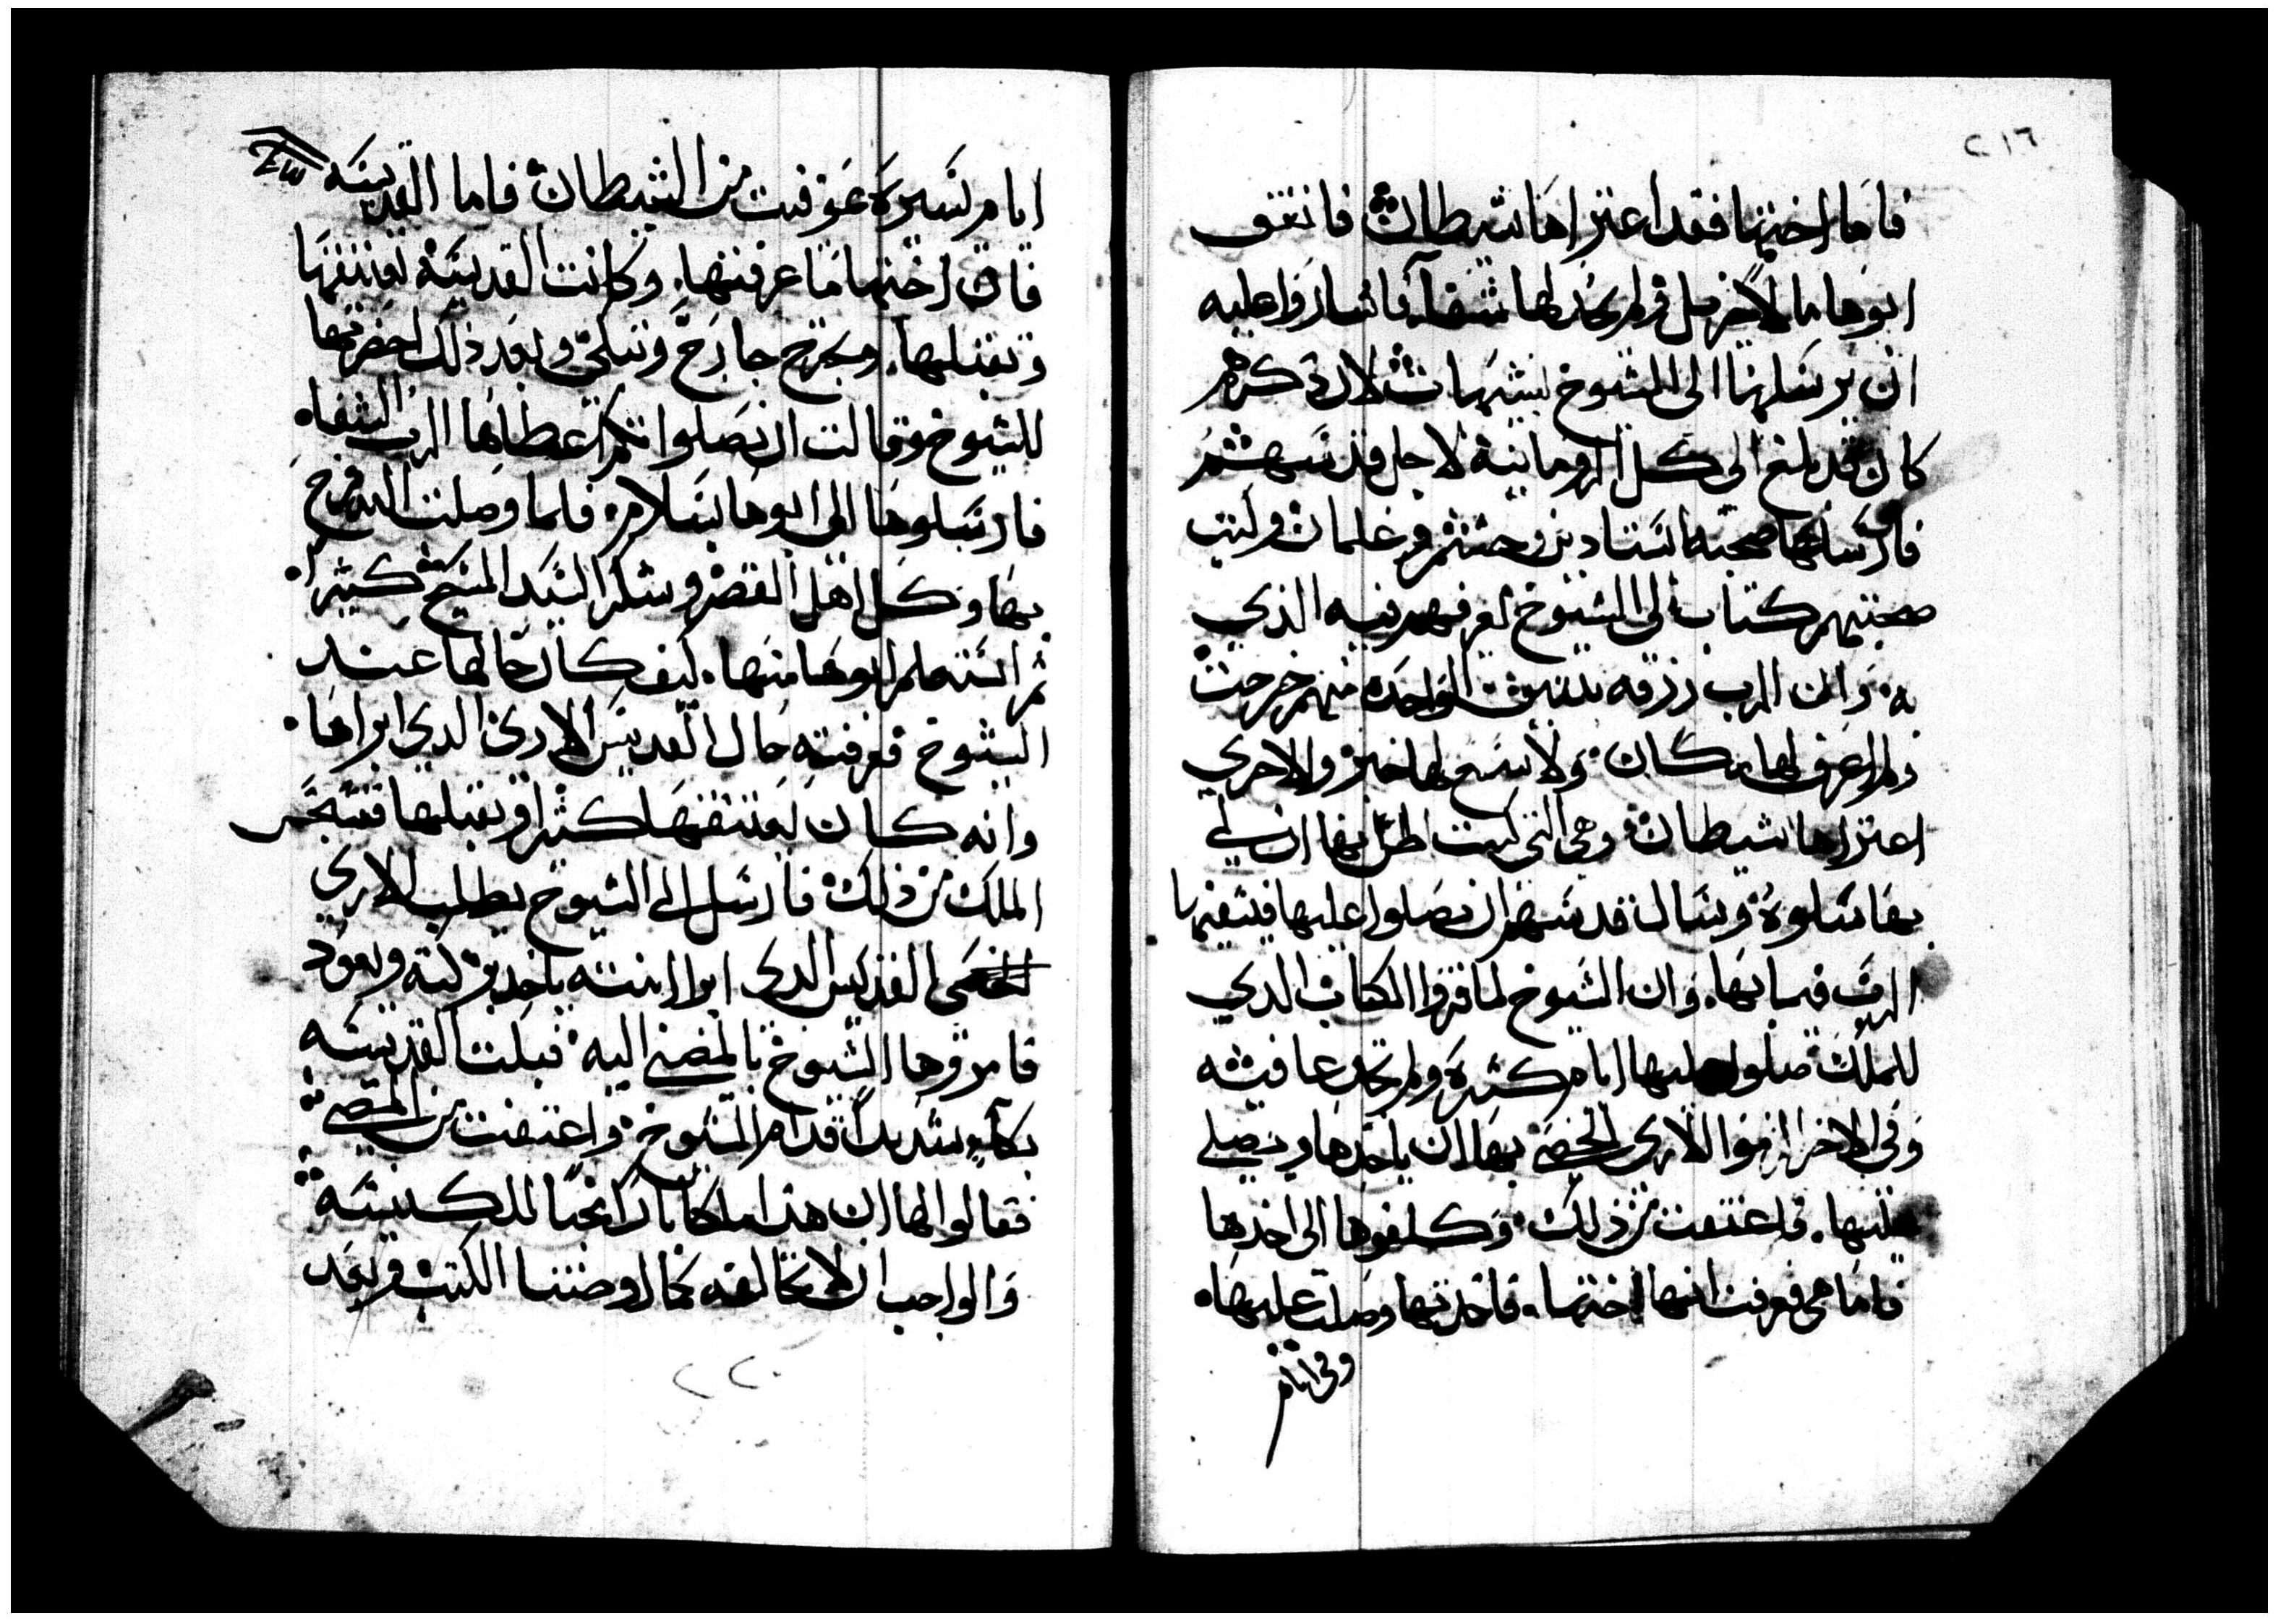 ٢١٦
فاما اختها فقد اعتراها شيطان فانفق
ابوها مالا جزيل ولم يجد لها شفآ فاشاروا عليه
ان يرسلها الى الشيوخ بشيهات لان ذكرهم
كان قد بلغ الى كل الرومانيه لاجل قدسهم
فارسلها صحبة استادين وحشم وغلمان وكتب
صحبتهم كتاب الى الشيوخ يعرفهم فيه الذي
به وان الرب رزقه بنتين الواحده منهم خرجت
ولم اعرف لها مكان ولا سمع لها خبر والاخري
اعتراها شيطان وهي التي كنت اظن بها ان لي
بها سلوه ونسال قدسهم ان تصلوا عليها فيشفيها
الرب مما بها. وان الشيوخ لما قروا الكتاب الدي
للملك صلوا عليها ايام كثيره ولم تجد عافيه
وفي الاخر الزموا الاري الخصي بها ان ياخدها ويصلي
عليها. فاعتفت من ذلك وكلفوها الى اخدها
فاما هى فعرفت انها اختها. فاخدتها وصلت عليها.
وفى ايام
ايام يسيره عوفيت من الشيطان فاما القديسه
فان اختها ما عرفتها. وكانت القديسه تعتنقها
وتقبلها. وتخرج خارج وتبكي وبعد ذلك احضرتها
للشيوخ وقالت ان بصلواتكم اعطاها الرب الشفاه
فارسلوها الى ابوها بسلام. فلما وصلت اليه فرح
بها وكل اهل القصر وشكر السيد المسيح كثيرا.
ثم استعلم ابوها منها. كيف كان حالها عند
الشيوخ فعرفته حال القديس الاري الدي ابراها.
وانه كان يعتنقها كثيرا ويقبلها فتعجب
الملك من ذلك فارسل الى الشيوخ يطلب الاري
الخصى القديس الدي ابرا ابنته ياخد بركته ويعود
فامروها الشيوخ بالمضي اليه فبكت القديسه
بكآء شديداً قدام الشيوخ واعتفت من المضي
فقالوا لها ان هدا ملكا بارا محباً للكنيسه
والواجب ان لا نخالفه كما اوصتنا الكتب وبعد
٢٢٠